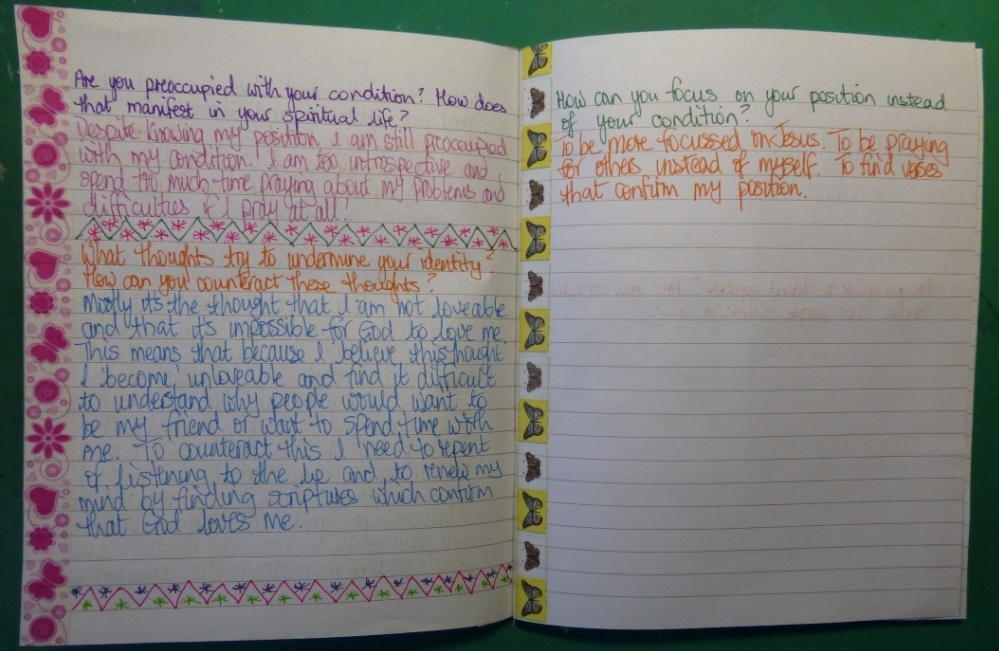 Are you preoccupied with your condition? How does
that manifest in your spiritual life?
Despite knowing my position I am still preoccupied
with my condition. I am too introspective and
spend too much time praying about my problems and
difficulties if I pray at all!
What thoughts try to undermine your identity?
How can you counteract these thoughts?
Mostly its the thought that I am not loveable
and that its impossible for God to love me.
This means that because I believe this thought
I become unloveable and find it difficult
to understand why people would want to
be my friend or want to spend time with
me. To counteract this I need to repent
of listening to the lie and to renew my
mind by finding scriptures which confirm
that God loves me.
How can you focus on your position instead
of your condition?
To be more focussed on Jesus. To be praying
for others instead of myself. To find verses
that confirm my position.